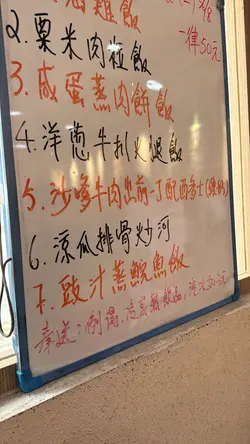 飯
一律50元
2.粟米肉粒飯
3.咸蛋蒸肉餅飯
4.洋蔥牛扒火腿飯
5.沙爹牛肉出前一丁配西多士
6.涼瓜排骨炒河
7.豉汁蒸鯇魚飯
奉送:例湯